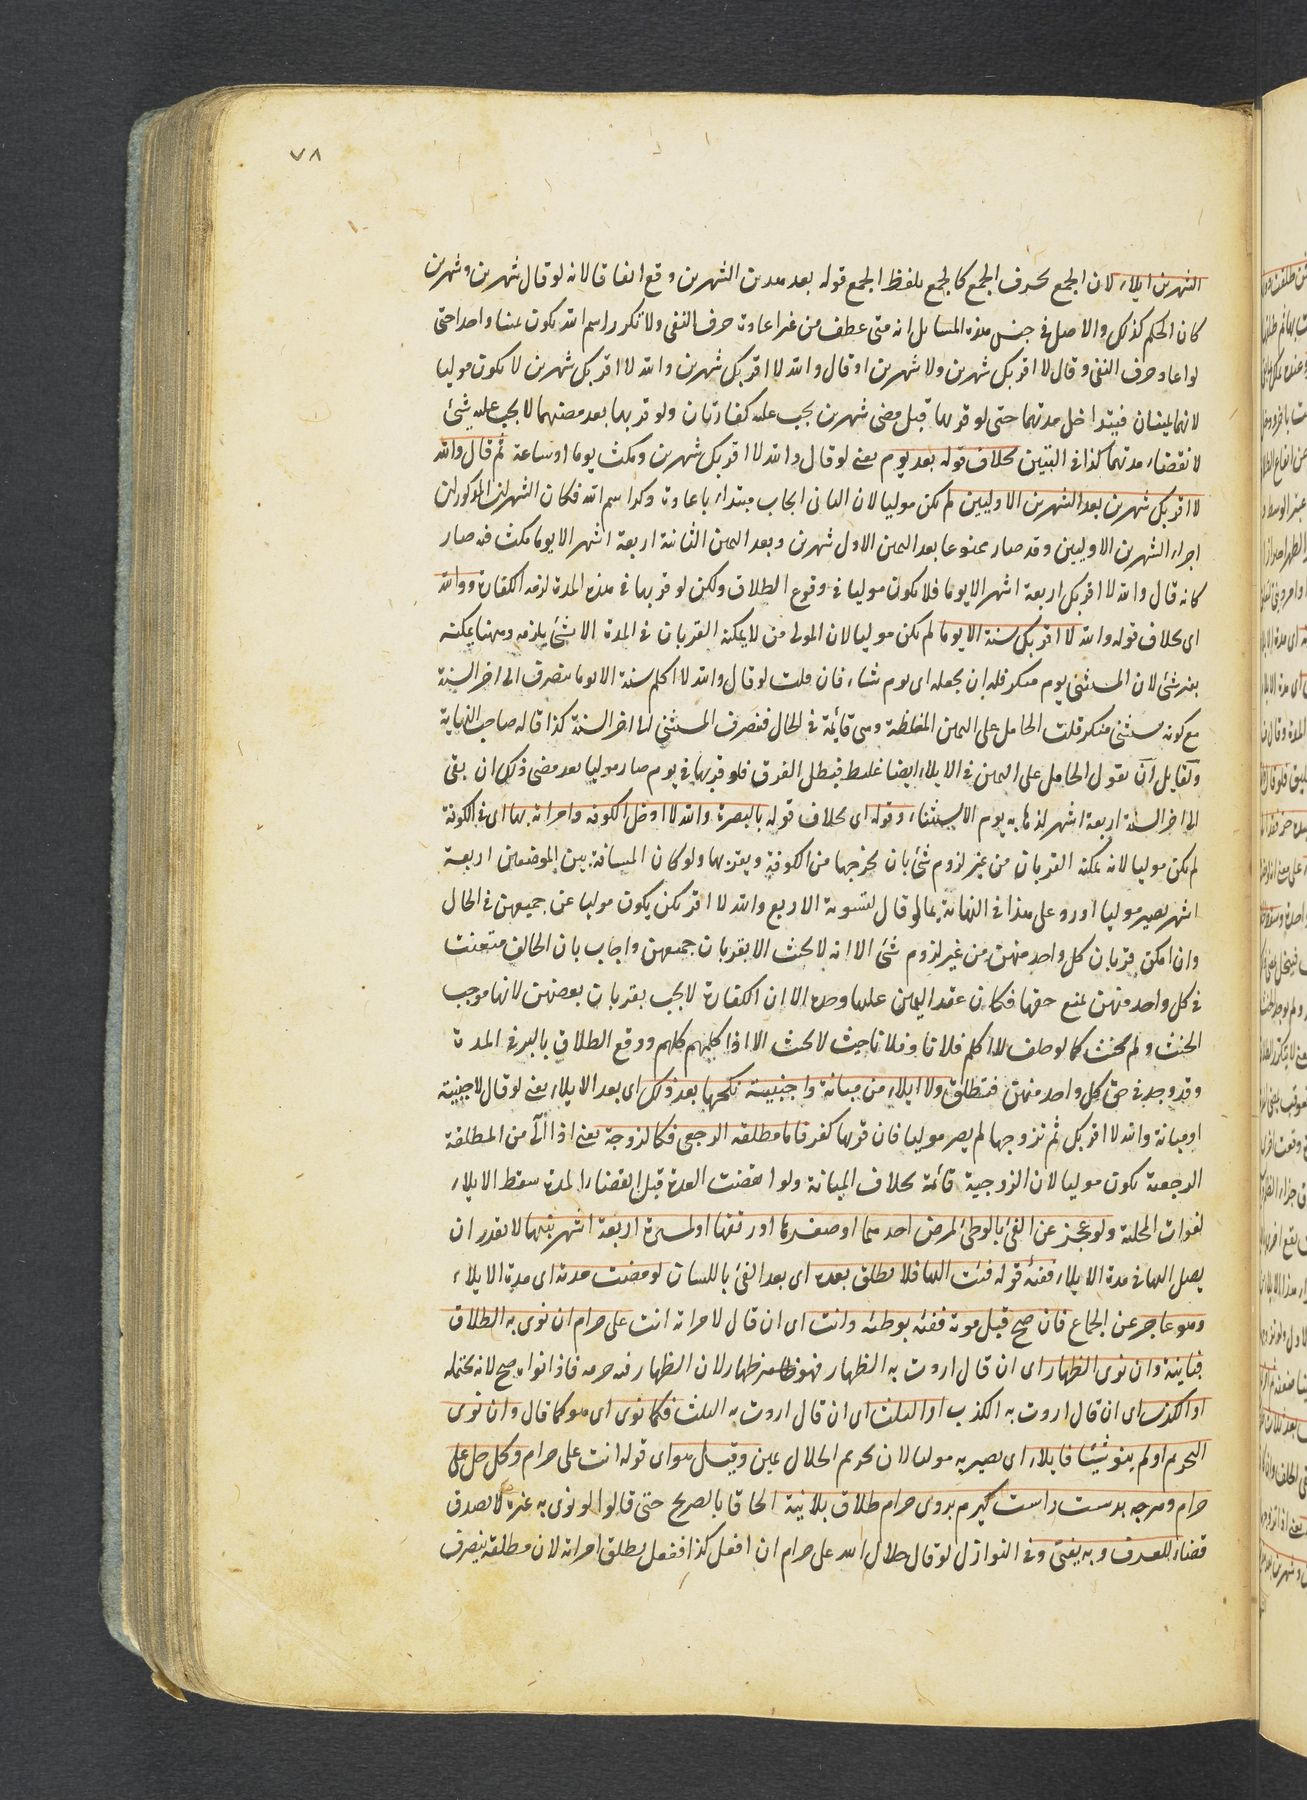 ٧٨
الشهرين ايلاء لان الجمع بحرف الجمع كالجمع بلفظ الجمع قوله بعد هذين الشهرين وقع اتفاقا لانه لو قال شهرين وشهرين
كان الحكم كذلك والاصل في جنس هذه المسائل انه متى عطف من غير اعادة حرف النفي ولا تكرر اسم الله يكون يمينا واحدا حتى
لو اعاد حرف النفي وقال لا اقربك شهرين ولا شهرين او قال والله لا اقربك شهرين والله لا اقربك شهرين لا يكون موليا
لانهما يمينان فيتداخل مدتهما حتى لو قربها قبل مضي شهرين يجب عليه كفارتان ولو قربها بعد مضيهما لا يجب عليه شئ
لانقضاء مدتهما كذا في التبيين بخلاف قوله بعد يوم يعني لو قال والله لا اقربك شهرين ومكث يوما او ساعة ثم قال والله
لا اقربك شهرين بعد الشهرين الاوليين لم يكن موليا لان الثاني ايجاب مبتداء باعادة وكذا اسم الله فكان الشهران المذكوران
اجراء الشهرين الاوليين وقد صار ممنوعا بعد اليمين الاول شهرين وبعد اليمين الثانية اربعة اشهر الا يوما مكث فيه صار
كانه قال والله لا اقربك اربعة اشهر الا يوما فلا يكون موليا في وقوع الطلاق ولكن لو قربها في هذه المدة لزمه الكفارة ووالله
اى بخلاف قوله والله لا اقربك سنة الا يوما لم يكن موليا لان المولى من لا يمكنه القربان في المدة الا بشئ يلزمه وههنا يمكنه
بغير شئ لان المستثنى يوم منكر فله ان يجعله اى يوم شاء فان قلت لو قال والله لا اكلم سنة الا يوما ينصرف الى اخر السنة
مع كونه مستثنى منكر قلت الحامل على اليمين المغلظة وهى قائمة في الحال فينصرف المستثنى الى اخر السنة كذا قاله صاحب النهاية
ولقايل ان يقول الحامل على اليمين في الايلاء ايضا غلط فيبطل الفرق فلو قربها في يوم صار موليا بعد مضي ذلك ان بقي
الى اخر السنة اربعة اشهر لذهابه يوم الاستثناء وقوله اى بخلاف قوله بالبصرة والله لا ادخل الكوفة وامراته بها اى في الكوفة
لم يكن موليا لانه يمكنه القربان من غير لزوم شئ بان يخرجها من الكوفة ويقربها ولو كان المسافة بين الموضعين اربعة
اشهر يصير موليا اورد على هذا في النهاية بما لو قال لنسوته الاربع والله لا اقربكن يكون موليا عن جميعهن في الحال
وان امكن قربان كل واحد منهن من غير لزوم شئ الا انه لا يحنث الا بقربان جميعهن واجاب بان الحالف متعنت
في كل واحد منهن بمنع حقها فكان عقد اليمين عليها وحده الا ان الكفارة لا يجب بقربان بعضهن لانها موجب
الحنث ولم يحنث كما لو حلف لا اكلم فلانا وفلانا حيث لا يحنث الا اذا كلمهم كلهم ووقع الطلاق بالبر في المدة
وقد وجد في حق كل واحد منهن فتطلق ولا ايلاء من مبانة واجنبية نكحها بعد ذلك اى بعد الايلاء يعني لو قال لاجنبية
او مبانة والله لا اقربك ثم تزوجها لم يصر موليا فان قربها كفر فاما مطلقه الرجعى فكالزوجة يعني اذا آلى من المطلقة
الرجعية يكون موليا لان الزوجية قائمة بخلاف المبانة ولو انقضت العدة قبل انقضاء المدة سقط الايلاء
لفوات المحلية ولو عجز عن الفئ بالوطئ لمرض احدهما او صغرها او رتقها او لمسيرة اربعة اشهر بينهما لا يقدر ان
يصل اليها في مدة الايلاء ففيئه قوله فئت اليها فلا يطلق بعده اى بعد الفئ باللسان لو مضت مدته اى مدة الايلاء
وهو عاجز عن الجماع فان صح قبل موته ففيئه بوطئه وانت اى ان قال لامراته انت على حرام ان نوى به الطلاق
فباينة وان نوى الظهار اى ان قال اردت به الظهار فهو ظهار لان الظهار فيه حرمه فاذا نواه صح لانه يحتمله
او الكذب اى ان قال اردت به الكذب او الثلث اى ان قال اردت به الثلث فكما نوى اى هو كما قال وان نوى
التحريم او لم ينو شيئا فايلاء اى يصير به موليا لان تحريم الحلال يمين وقيل هو اى قوله انت على حرام وكل حل على
حرام وهرچه بدست راست گيرم بروى حرام طلاق بلا نية الحاقا بالصريح حتى قالوا لو نوى به غيره لا يصدق
قضاء للعرف وبه يفتى وفي النوازل لو قال حلال الله على حرام ان افعل كذا ففعل يطلق امراته لان مطلقه ينصرف